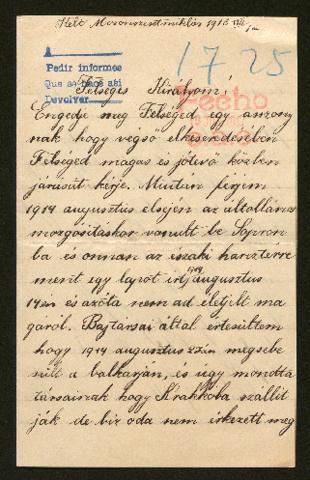 Kelt Mosonszentmiklós 1916
1725
A
Pedir informes
Que se sepa aki
Devolver
Fecho
Felséges Királyom!
Engedje meg Felséged egy asszony
nak hogy végső elkeseredésében
Felséged magas és jótevő közben
járását kérje. Miután férjem
1914 augusztus elsején az általános
mozgósitáskor vonult be Sopron
ba és onnan az északi harcztérre
ment egy lapot irt 1914 augusztus
14én és azóta nem ad életjelt ma
gáról. Bajtársai által értesültem
hogy 1914 augusztus 27én megsebe
sült a balkarján, és úgy mondta
társainak hogy Krakkóba szállit
ják de biz oda nem érkezett meg